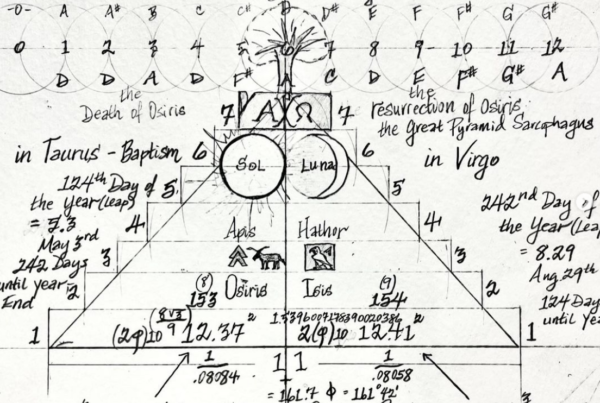 -0- A A# B C C# D D# E F F# G G#
0 1 2 3 4 5 6 7 8 9 10 11 12
D D A D F# A C D E F# G# A
the
Death of Osiris
7 A Ω 7
the
resurrection of Osiris
the Great Pyramid Sarcophagus
in Taurus - Baptism
6 Sol Luna 6
in Virgo
124th Day of
the year (leap)
= 5.3
May 3rd
242 Days
until year
End
5
4
3
2
1
Apis Hathor
5
4
3
2
1
242nd Day of
the Year (Leap
= 8.29
Aug 29th
124 Day
until Yea
(8) (9)
153 Osiris Isis 154
(2φ)10 12.37² 2(φ)10 12.41²
1 1 1 1
.08084 .08058
= 161.7 φ = 161°42'